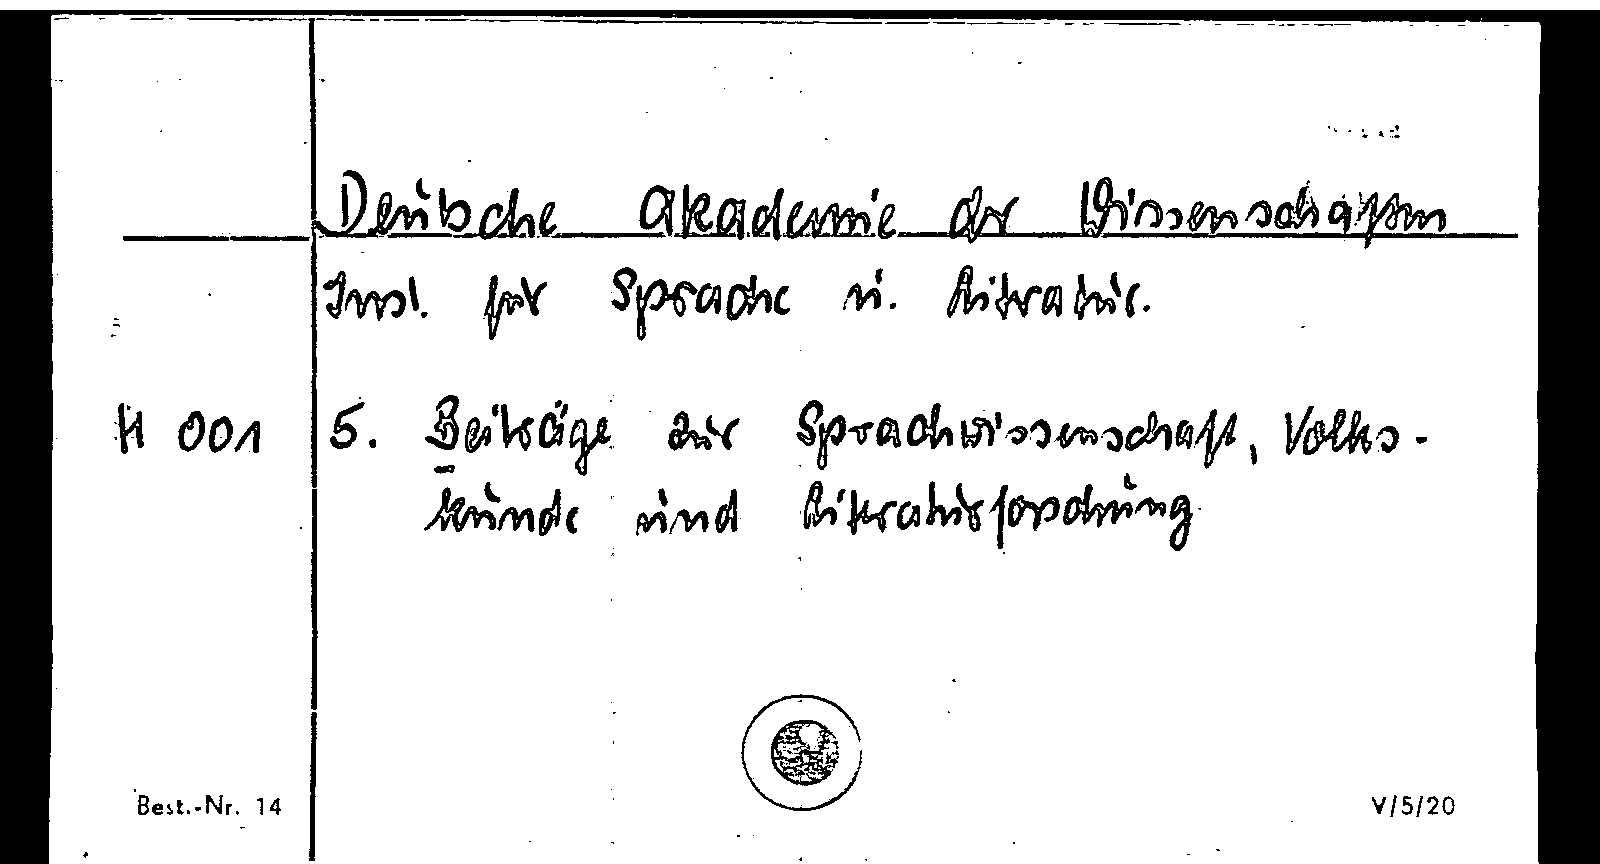 Deutsche Akademie der Wissenschaften
Inst. für Sprache u. Literatur.
H 001 5. Beiträge zur Sprachwissenschaft, Volks-
kunde und Literaturforschung
Best.-Nr. 14 V/5/20